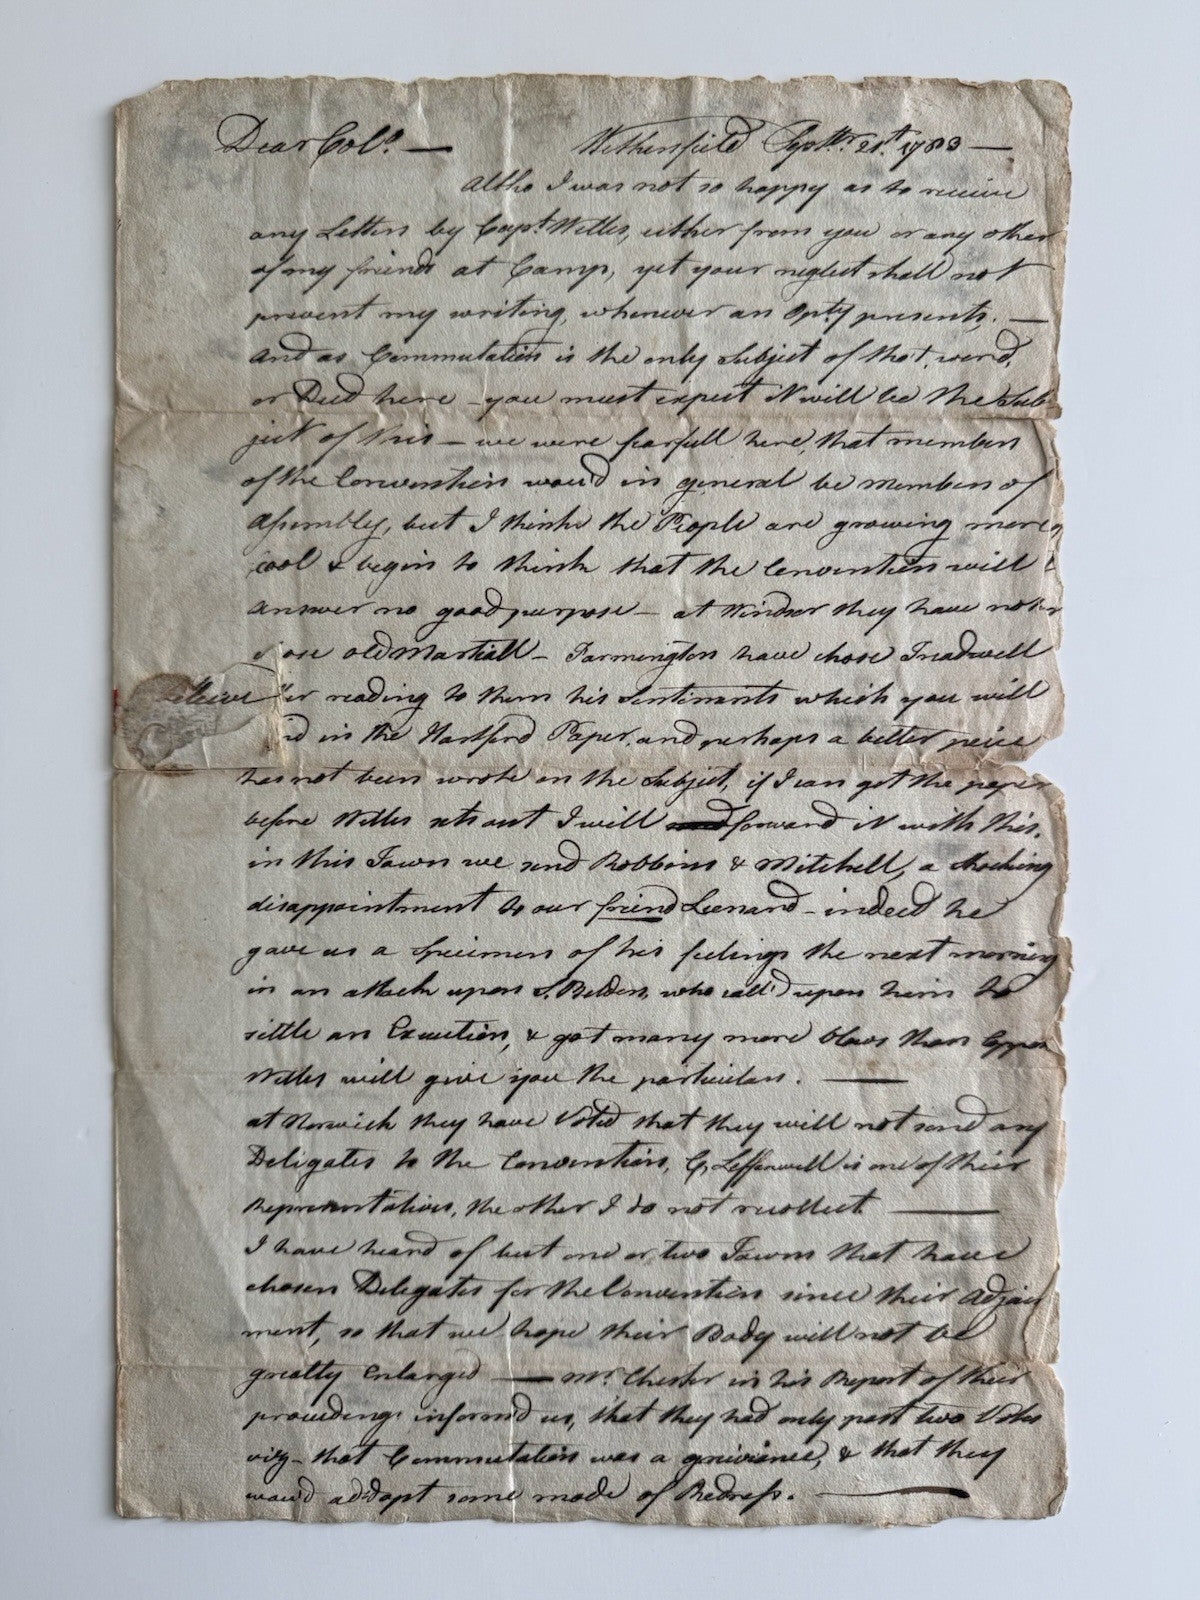 Dear Col.o — Wethersfield Septr. 21st. 1783 —
Altho I was not so happy as to receive
any Letters by Capt. Welles, either from you or any other
of my friends at Camp, yet your neglect shall not
prevent my writing, whenever an Opty presents. —
And as Commutation is the only Subject of that, word,
or Deed here — you must expect it will be the Sub-
ject of this — we were fearfull here, that members
of the Convention would in general be members of
Assembly, but I think the People are growing more
cool & begin to think that the Convention will
answer no good purpose — at Windsor they have not
chose old Martiall — Farmington have chose Treadwell
after reading to them his Sentiments which you will
find in the Hartford Paper, and perhaps a better peice
has not been wrote on the Subject, if I can get the paper
before Welles sets out I will forward it with this.
in this Town we send Robbins & Mitchell, a shocking
disappointment to our friend Leonard — indeed he
gave us a specimen of his feelings the next morning
in an attack upon S. Belden, who call'd upon him to
settle an Execution, & got many more blows than Coppers
Welles will give you the particulars. —
at Norwich they have Voted that they will not send any
Deligates to the Convention, C, Leffenwell is one of their
Representatives, the other I do not recollect —
I have heard of but one or two Towns that have
chosen Delegates for the Convention since their Adjorn
ment, so that we hope their Body will not be
greatly Enlarged — Mr. Chester in his Report of their
proceedings inform'd us, that they had only past two Votes
viz — that Commutation was a grieviance, & that they
would addopt some mode of Redress. —